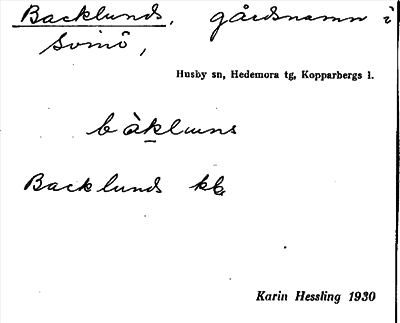 Backlunds, gårdsnamn i
Svinö,
Husby sn, Hedemora tg, Kopparbergs l.
bàkluns
Backlunds
Karin Hessling 1930